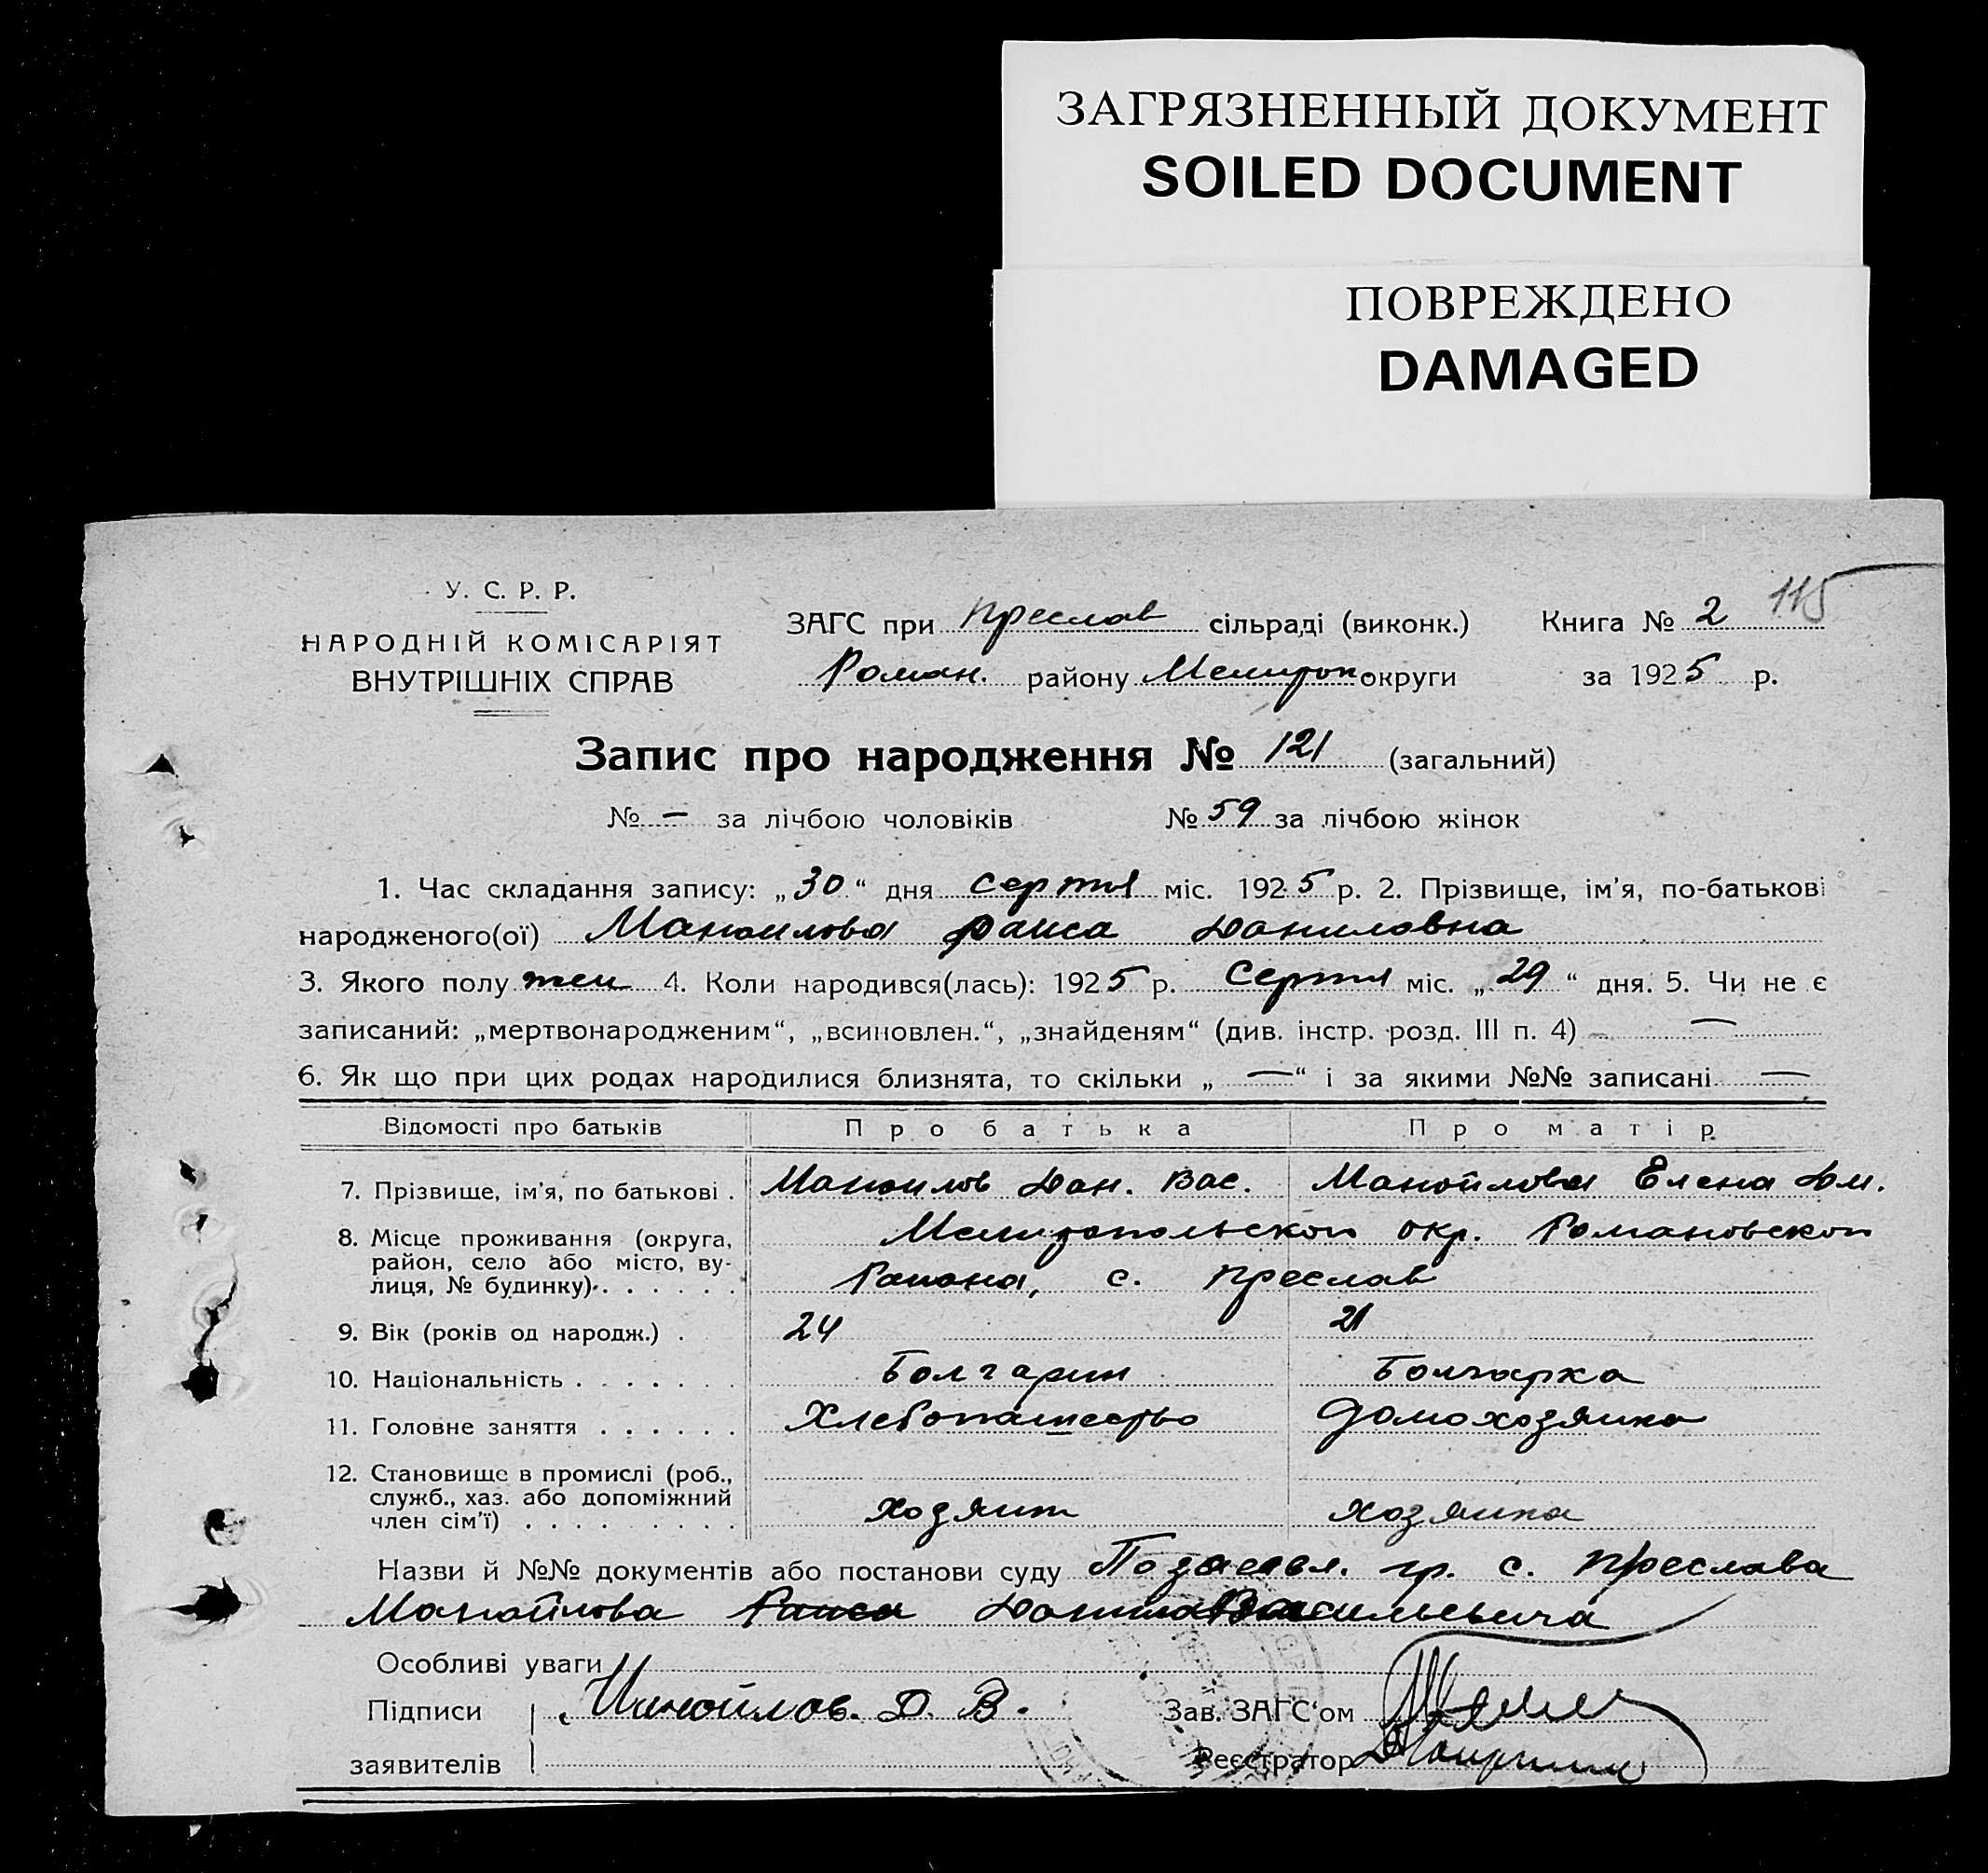 ЗАГРЯЗНЕННЫЙ ДОКУМЕНТ
SOILED DOCUMENT
ПОВРЕЖДЕНО
DAMAGED
У. С. Р. Р.
НАРОДНІЙ КОМІСАРІЯТ
ВНУТРІШНІХ СПРАВ
ЗАГС при Преслав сільраді (виконк.) Книга № 2 115
Роман. району Мелитоп. округи за 1925 р.
Запис про народження № 121 (загальний)
№ — за лічбою чоловіків № 59 за лічбою жінок
1. Час складання запису: „30“ дня серпня міс. 1925 р. 2. Прізвище, ім'я, по-батькові
народженого(ої) Манойлова Раиса Даниловна
3. Якого полу жен 4. Коли народився(лась): 1925 р. Серпня міс. „29“ дня. 5. Чи не є
записаний: „мертвонародженим“, „всиновлен.“, „знайденям“ (див. інстр. розд. III п. 4) —
6. Як що при цих родах народилися близнята, то скільки „—“ і за якими №№ записані —
Відомості про батьків Про батька Про матір
7. Прізвище, ім'я, по батькові . Манойлов Дан. Вас. Манойлова Елена Дм.
8. Місце проживання (округа, Мелитопольской окр. Романовского
район, село або місто, ву-
лиця, № будинку) . . . . . . Района, с. Преслав
9. Вік (років од народж.) . 24 21
10. Національність . . . . . . . Болгарин Болгарка
11. Головне заняття . . . . . . Хлебопашество Домохозяйка
12. Становище в промислі (роб.,
служб., хаз. або допоміжний
член сім'ї) . . . . . . . . . Хозяин хозяйка
Назви й №№ документів або постанови суду По заявл. гр. с. Преслава
Манойлова Раиса Данила Васильевича
Особливі уваги
Підписи Манойлов. Д. В. Зав. ЗАГС'ом
заявителів Реєстратор